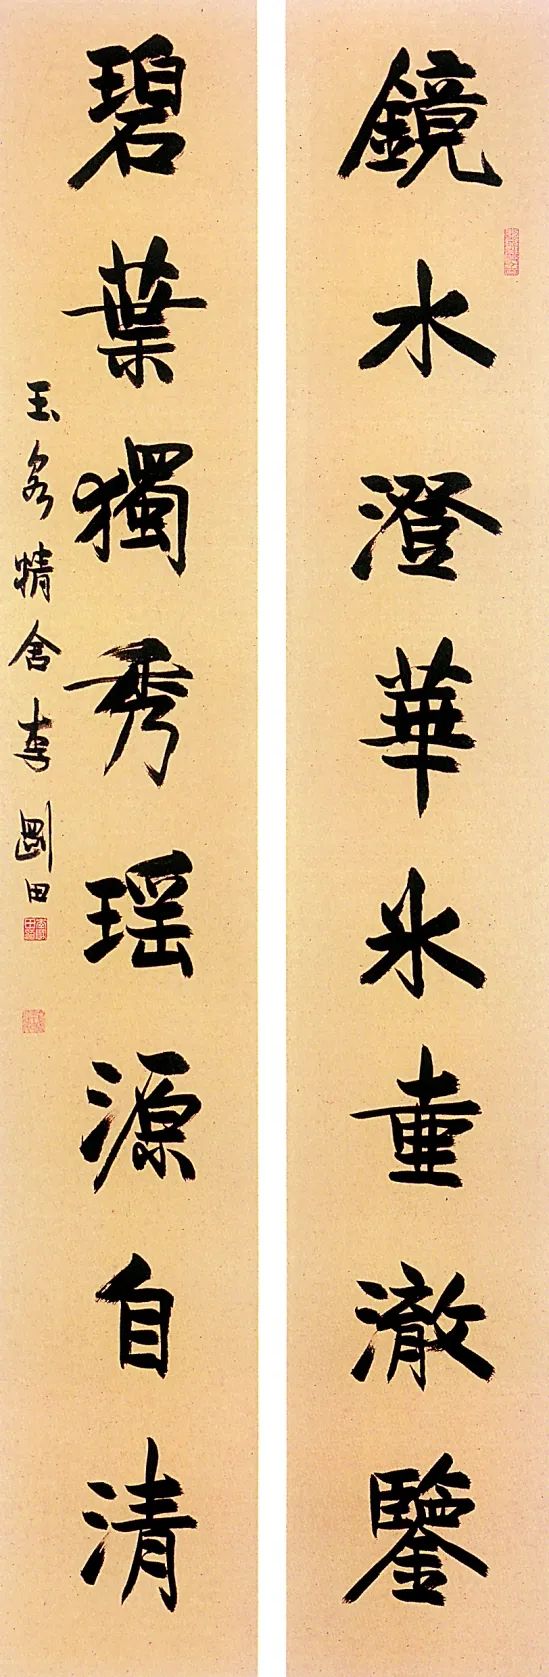 鏡水澄華氷壷澈鑒
碧葉獨秀瑶源自清
玉客精舍李剛田